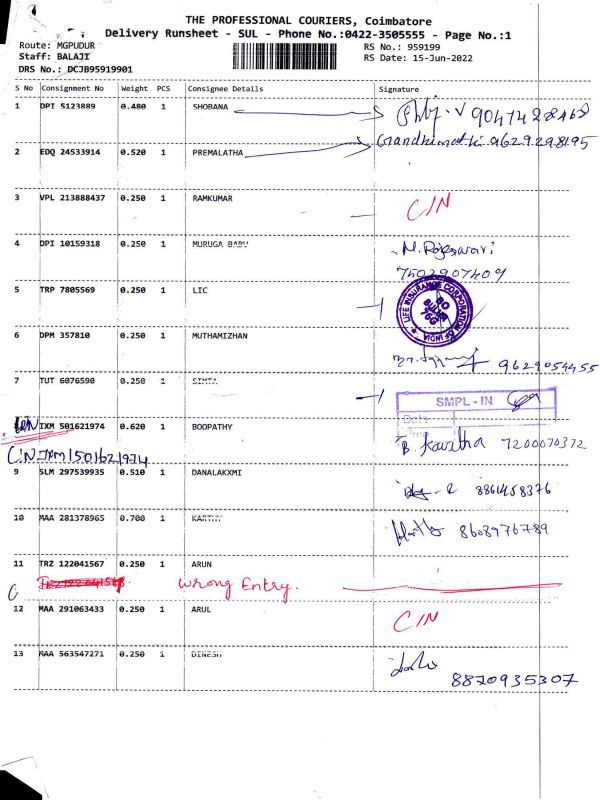 THE PROFESSIONAL COURIERS, Coimbatore
Delivery Runsheet - SUL - Phone No.:0422-3505555 - Page No.:1
Route: MGPUDUR RS No.: 959199
Staff: BALAJI RS Date: 15-Jun-2022
DRS No.: DCJB95919901
S No Consignment No Weight PCS Consignee Details Signature
1 DPI 5123889 0.480 1 SHOBANA 9047428468
2 EDQ 24533914 0.520 1 PREMALATHA Grandhimathi 9629298195
3 VPL 213888437 0.250 1 RAMKUMAR C/N
4 DPI 10159318 0.250 1 MURUGA BABU N. Rajeswari
7502907409
5 TRP 7805569 0.250 1 LIC LIFE INSURANCE CORPORATION OF INDIA BO SULUR 76G
6 DPM 357810 0.250 1 MUTHAMIZHAN
9629054455
7 TUT 6076590 0.250 1 SIMTA SMPL - IN
Date
IXM 501621974 0.620 1 BOOPATHY B. Kavitha 7200070372
C/N IXM 1501621974
9 SLM 297539935 0.510 1 DANALAKXMI 8861458376
10 MAA 281378965 0.700 1 KARTHY 8608976789
11 TRZ 122041567 0.250 1 ARUN
Wrong Entry.
12 MAA 291063433 0.250 1 ARUL C/N
13 MAA 563547271 0.250 1 DINESH
8870935307